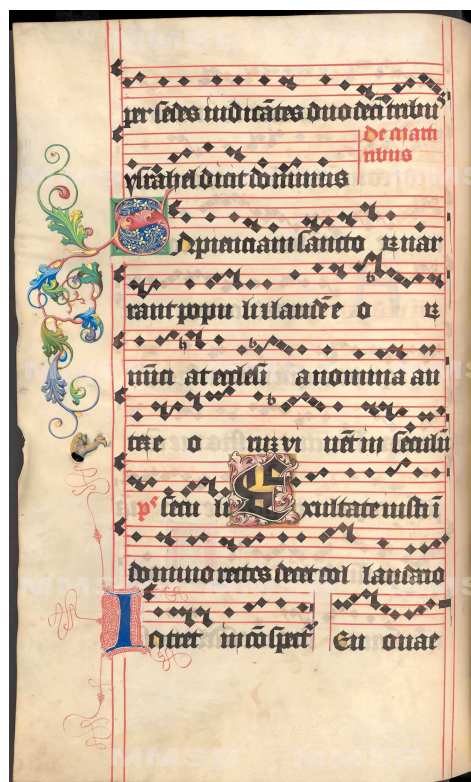 per sedes iudicātes duodecī tribꝰ
De martiribus
ysrahel dicit dominus
Sapienciam sanctorum nar
rant populi et laudes eorum
nūciat ecclesia nomina au
tem eorum vivent in seculū
ps seculi Exultate iusti ī
domino rectos decet collaudatio
Intret in cōspectu Euouae